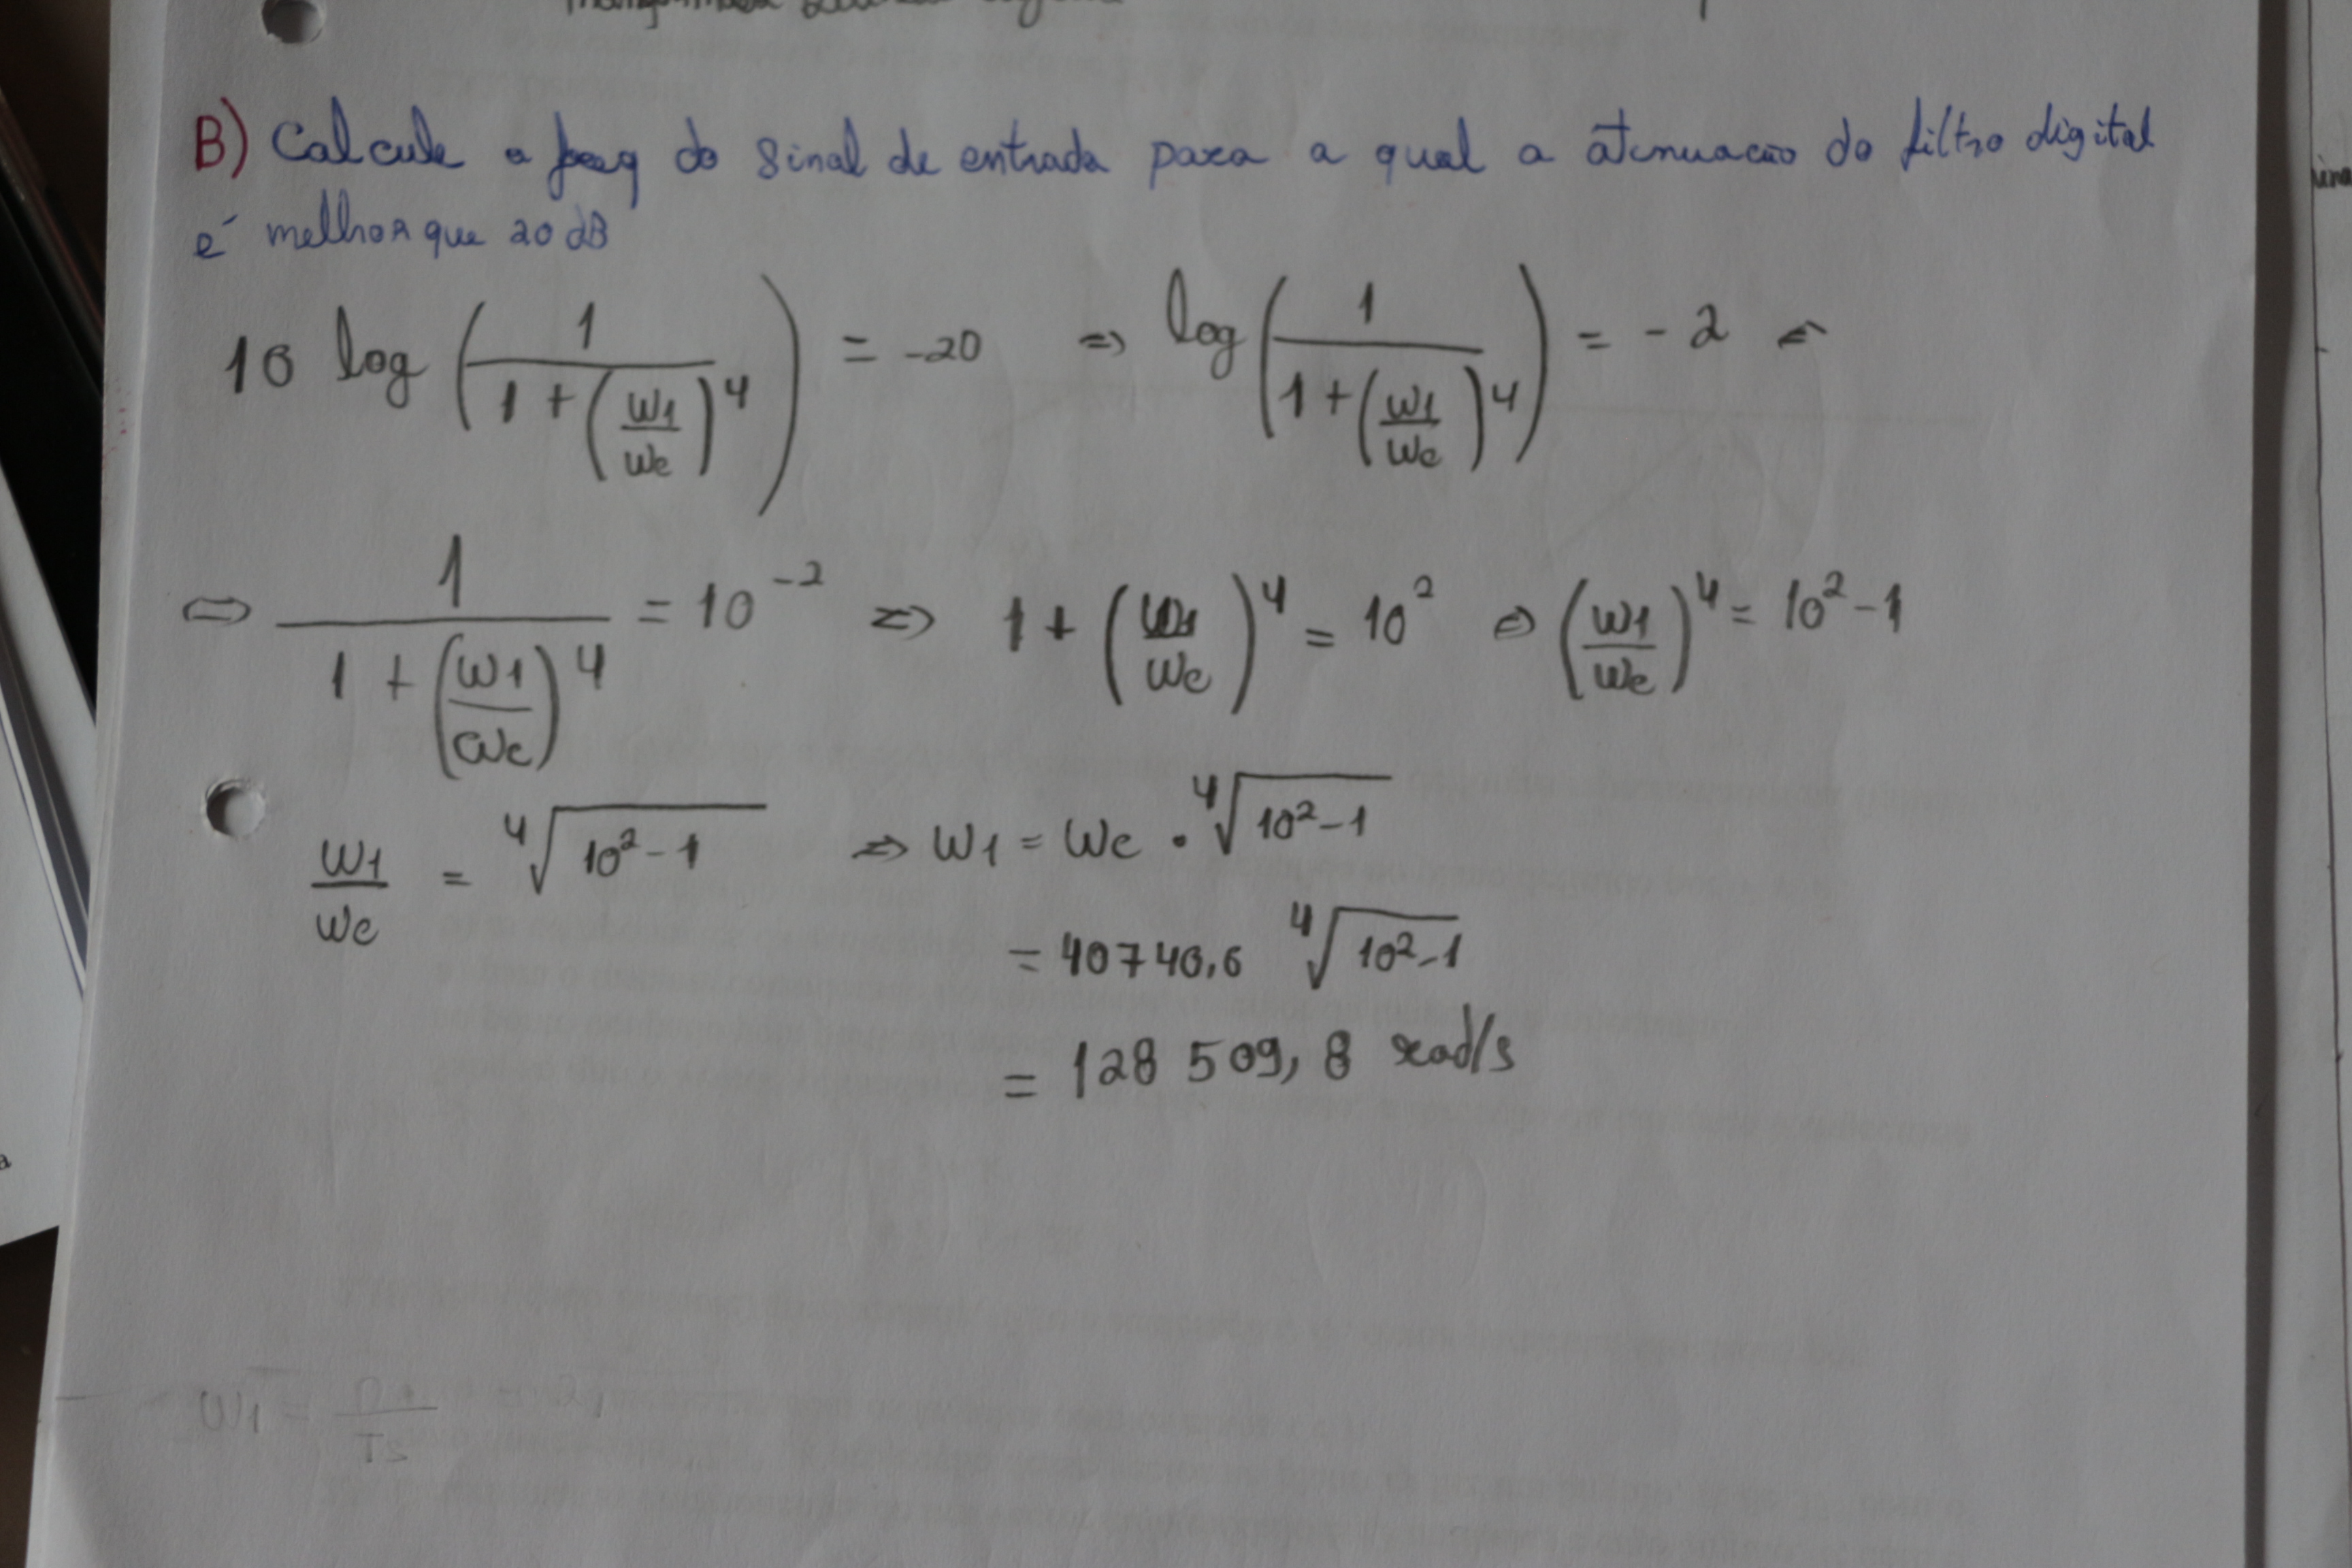 B) Calcule a freq do sinal de entrada para a qual a atenuacao do filtro digital
é melhor que 20 dB
10 log (1 / (1 + (w1/wc)^4)) = -20 => log (1 / (1 + (w1/wc)^4)) = -2 <=
<=> 1 / (1 + (w1/wc)^4) = 10^-2 => 1 + (w1/wc)^4 = 10^2 => (w1/wc)^4 = 10^2 - 1
w1/wc = ⁴√(10^2 - 1) => w1 = wc · ⁴√(10^2 - 1)
= 40740,6 ⁴√(10^2 - 1)
= 128 509,8 rad/s
w1 = / Ts